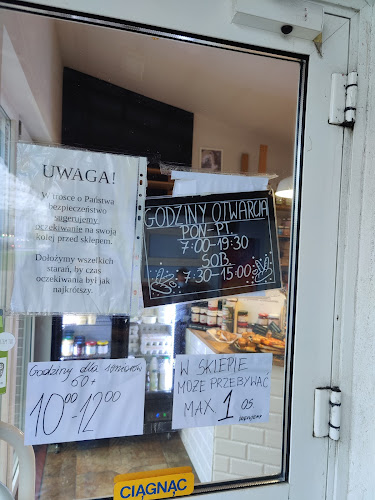 UWAGA!
W trosce o Państwa
bezpieczeństwo
sugerujemy
oczekiwanie na swoją
kolej przed sklepem.
Dołożymy wszelkich
starań, by czas
oczekiwania był jak
najkrótszy.
GODZINY OTWARCIA
PON-PT.
7:00-19:30
SOB.
7:30-15:00
Godziny dla seniorów
60+
10⁰⁰-12⁰⁰
W SKLEPIE
MOŻE PRZEBYWAĆ
MAX 1 OS
CIĄGNĄĆ